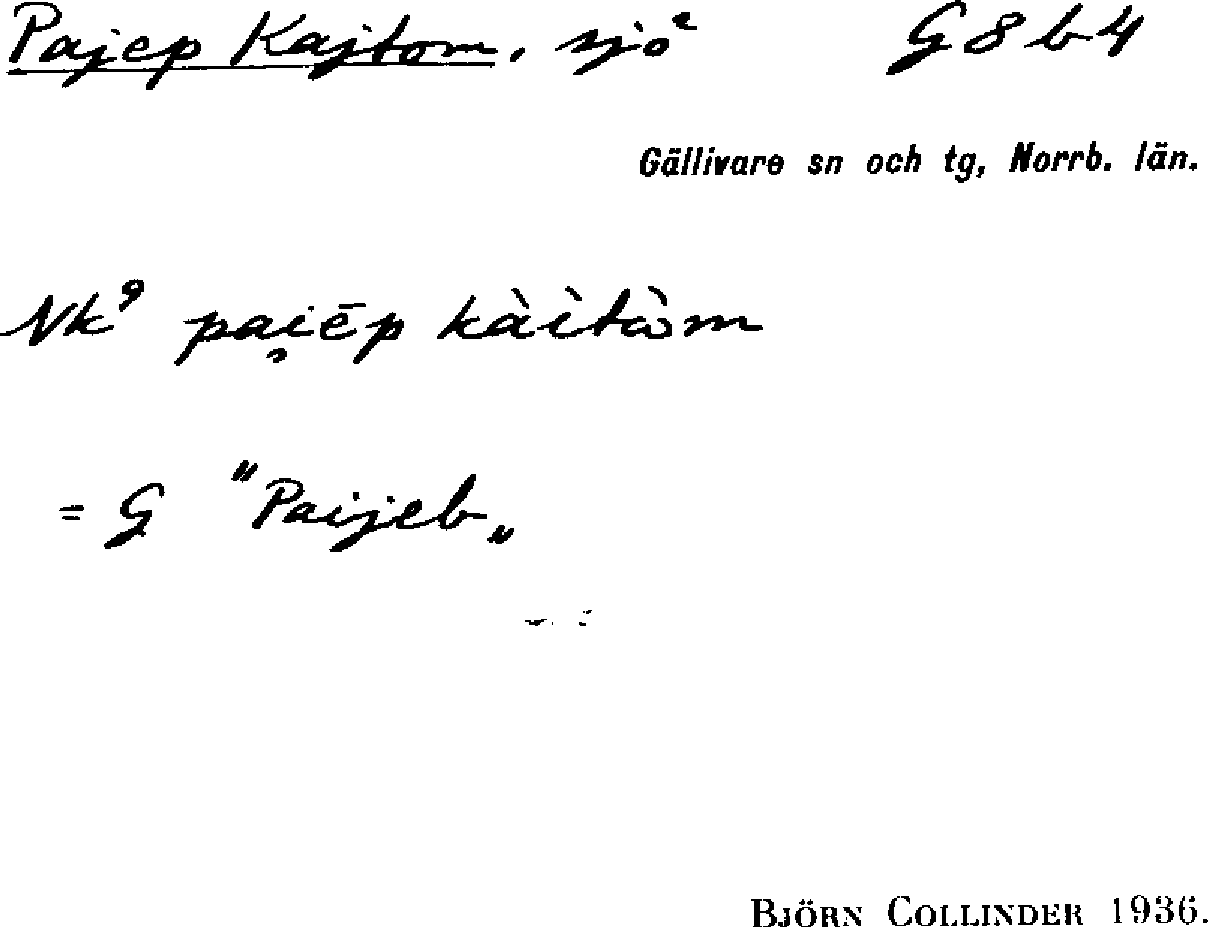 Pajep Kajtom, sjö G 8 b 4
Gällivare sn och tg, Norrb. län.
Nk⁹ pai̯ēp kàìtὼm
= G "Paijeb„
BJÖRN COLLINDER 1936.